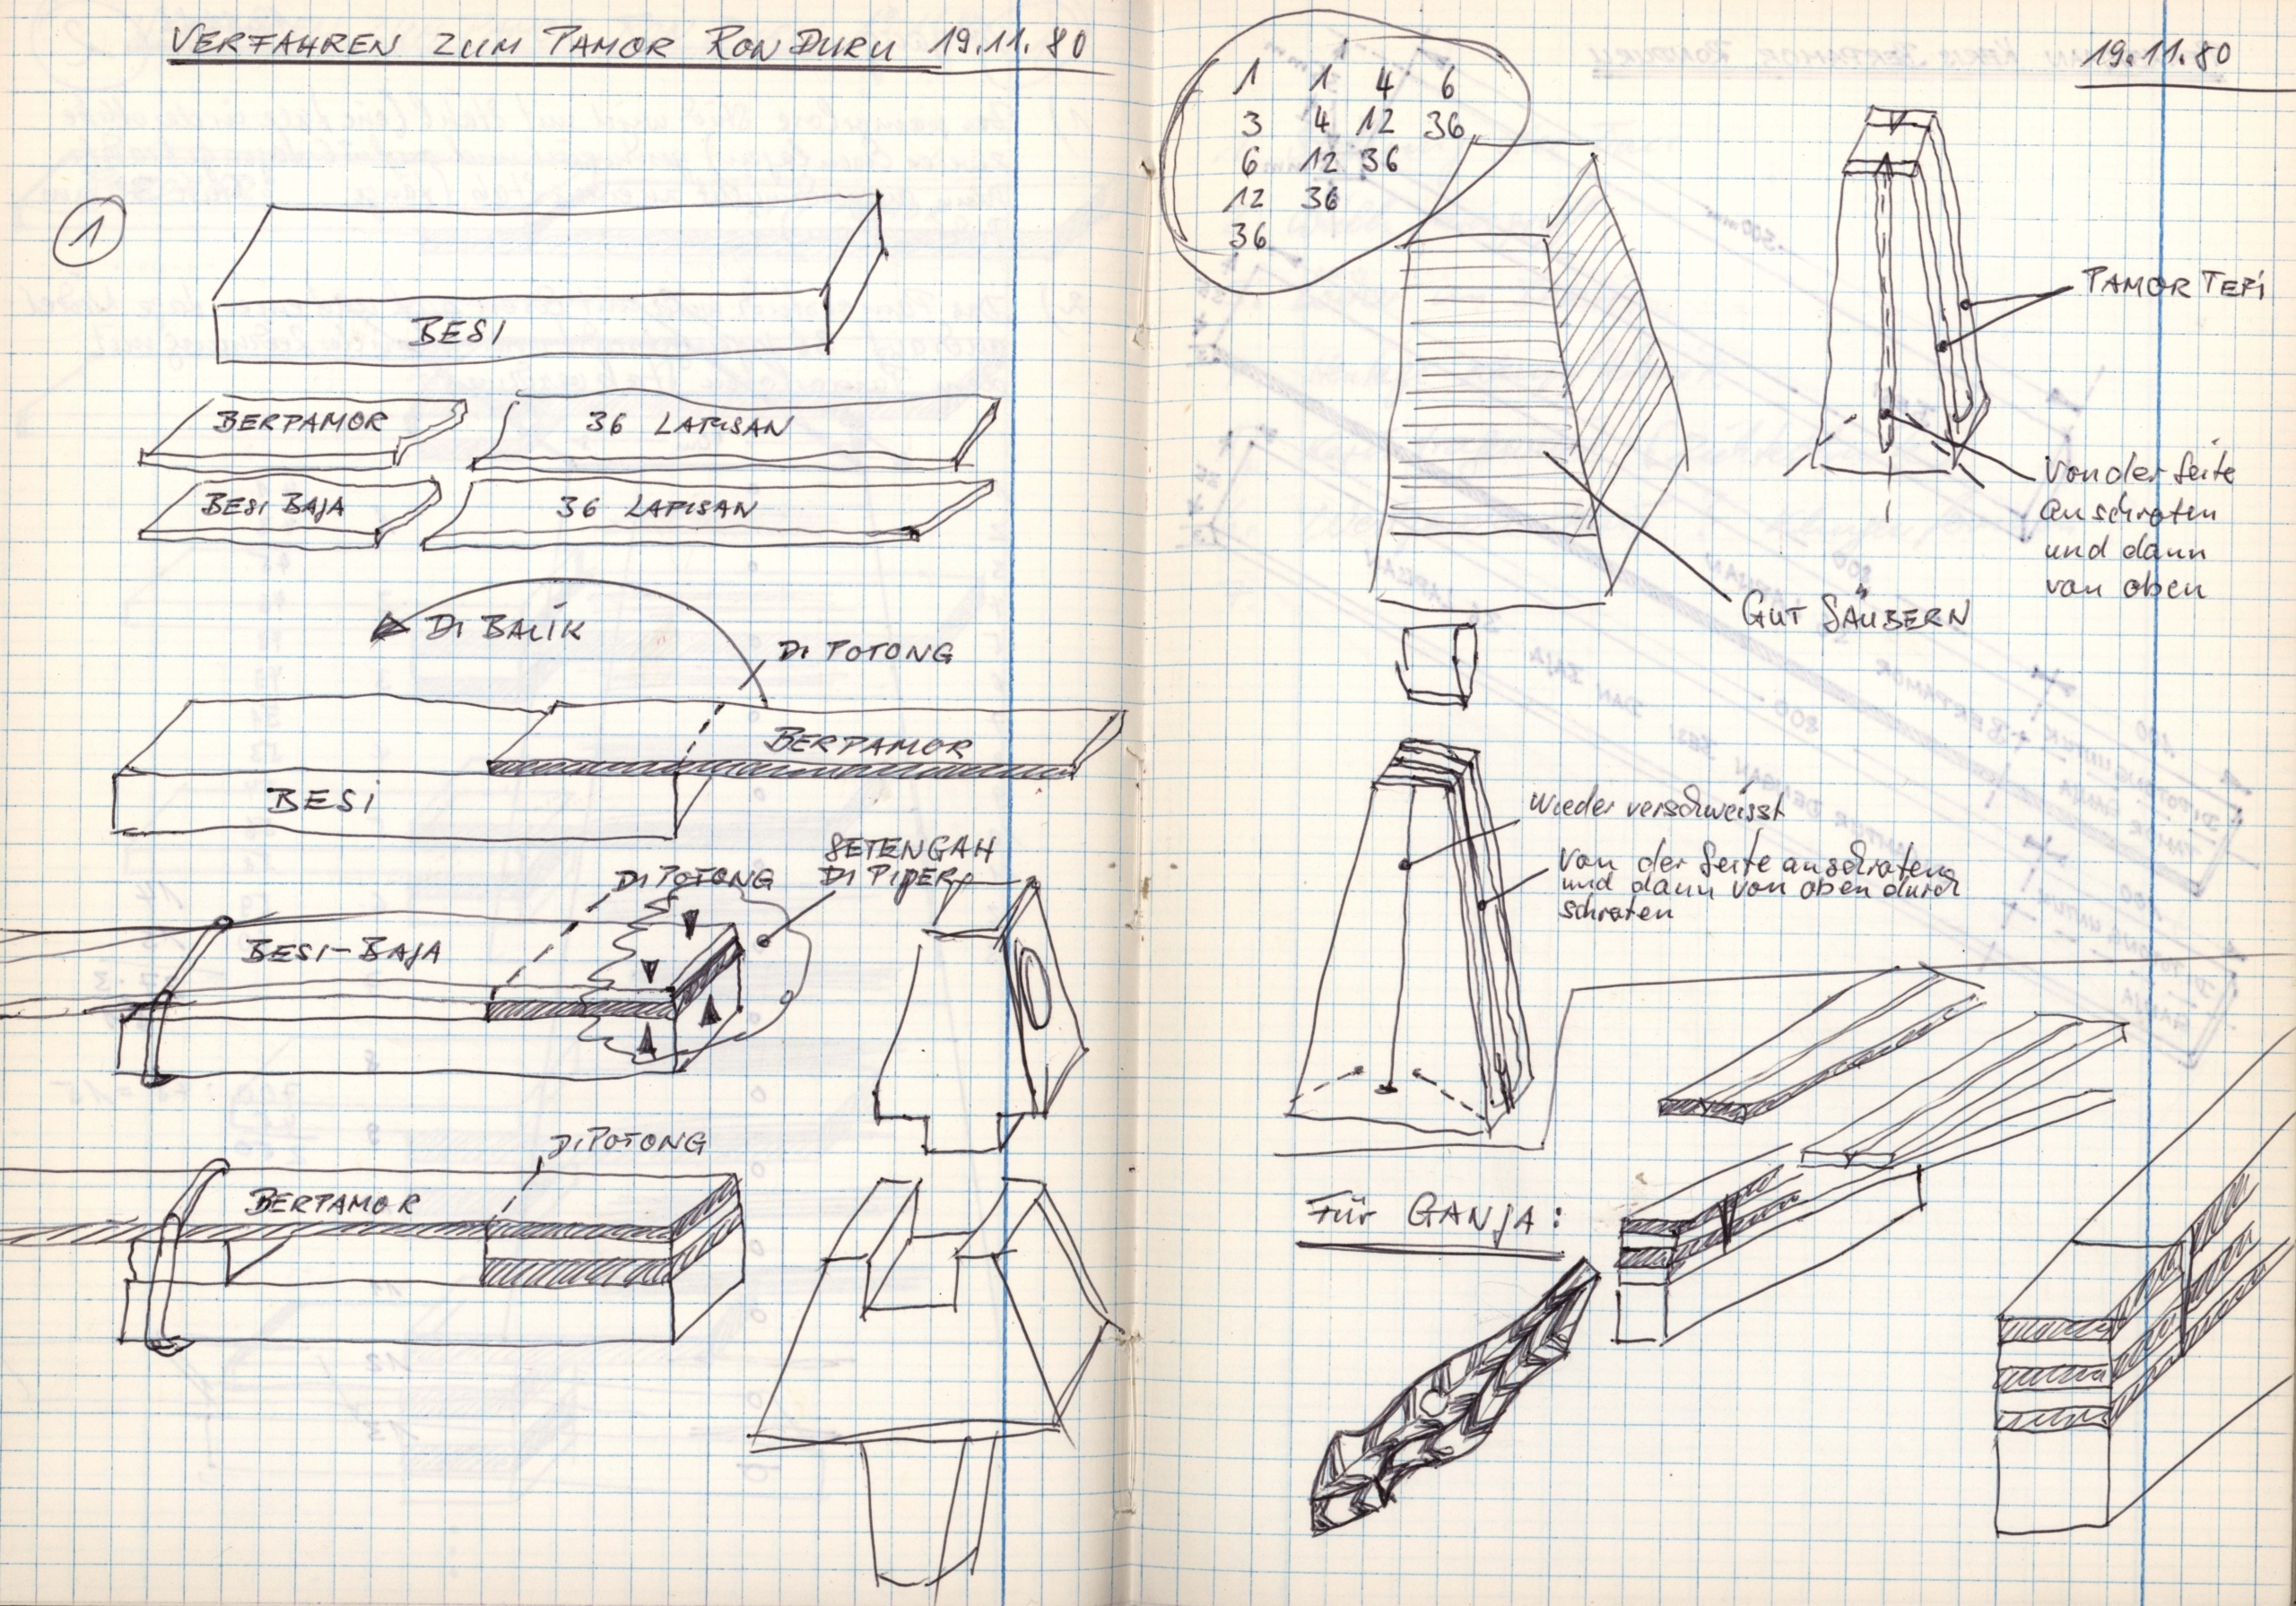 VERFAHREN ZUM PAMOR RON DURU 19.11.80
1
BESI
BERPAMOR
36 LAPISAN
BESI BAJA
36 LAPISAN
DI BALIK
DI POTONG
BERPAMOR
BESI
SETENGAH
DI POTONG
BESI-BAJA
DI POTONG
BERPAMOR
19.11.80
1 1 4 6
3 4 12 36
6 12 36
12 36
36
PAMOR TEPI
Von der Seite
anschroten
und dann
von oben
GUT SÄUBERN
Wieder verschweisst
Von der Seite anschroten
und dann von oben durch
schroten
FÜR GANJA: